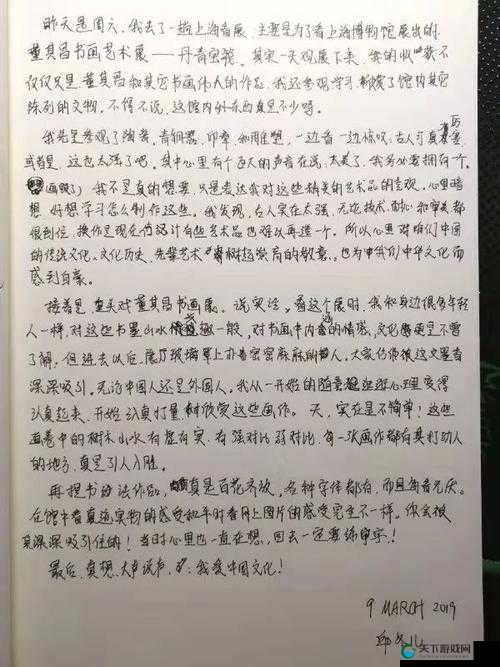 昨天是周六，我去了一趟上海看展，主要是为了看上海博物馆展出的
董其昌书画艺术展——丹青宝筏。其实一天观展下来，我的收获不
仅仅只是董其昌和其它书画伟人的作品，我还参观学习 了馆内其它
陈列的文物。不得不说，这馆内外东西真是不少呀。
我先是参观了陶瓷、青铜器、印章和雕塑，一边看一边惊叹：古人可真厉害
或者是，这也太强了吧。其中心里有个巨大的声音在说，太美了，我务必要拥有一个。
我不是真的想要，只是表达我对这些精美的艺术品的喜欢，心里暗
想 好想学习怎么制作这些。我发现，古人实在太强，无论技术、耐心和审美都
很到位，换作是现在 有些艺术品也难以再造一个。所以心里对咱们中国
的传统文化、文化历史、先辈艺术 敬意。也为中华文化而
感到自豪。
接着是重头对董其昌书画展。说实话，看这个展时，我和身边很多年轻
人一样，对这些书墨山水 一般，对书画中内含的情感，文化 更是不曾
了解。但进去以后，展厅玻璃罩上办着密密麻麻的人，大家仿佛被这文墨香
深深吸引。无论中国人还是外国人。我从一开始的 心理变得
认真起来，开始认真打量 欣赏这些画作。天，实在是不简单！这些
画卷中的树木山水有虚有实，有强对比弱对比，每一张画作都有其打动人
的地方，真是引人入胜。
再提书法作品，真是百花齐放，各种字体都有，而且每看无厌。
在馆中看真迹实物的感受和平时看网上图片的感受完全不一样。你会被
真深深吸引住的！当时心里也一直在想，回去一定要练字！
最后，真想大声说声，我爱中国文化！
9 MARCH 2019
天下游戏网